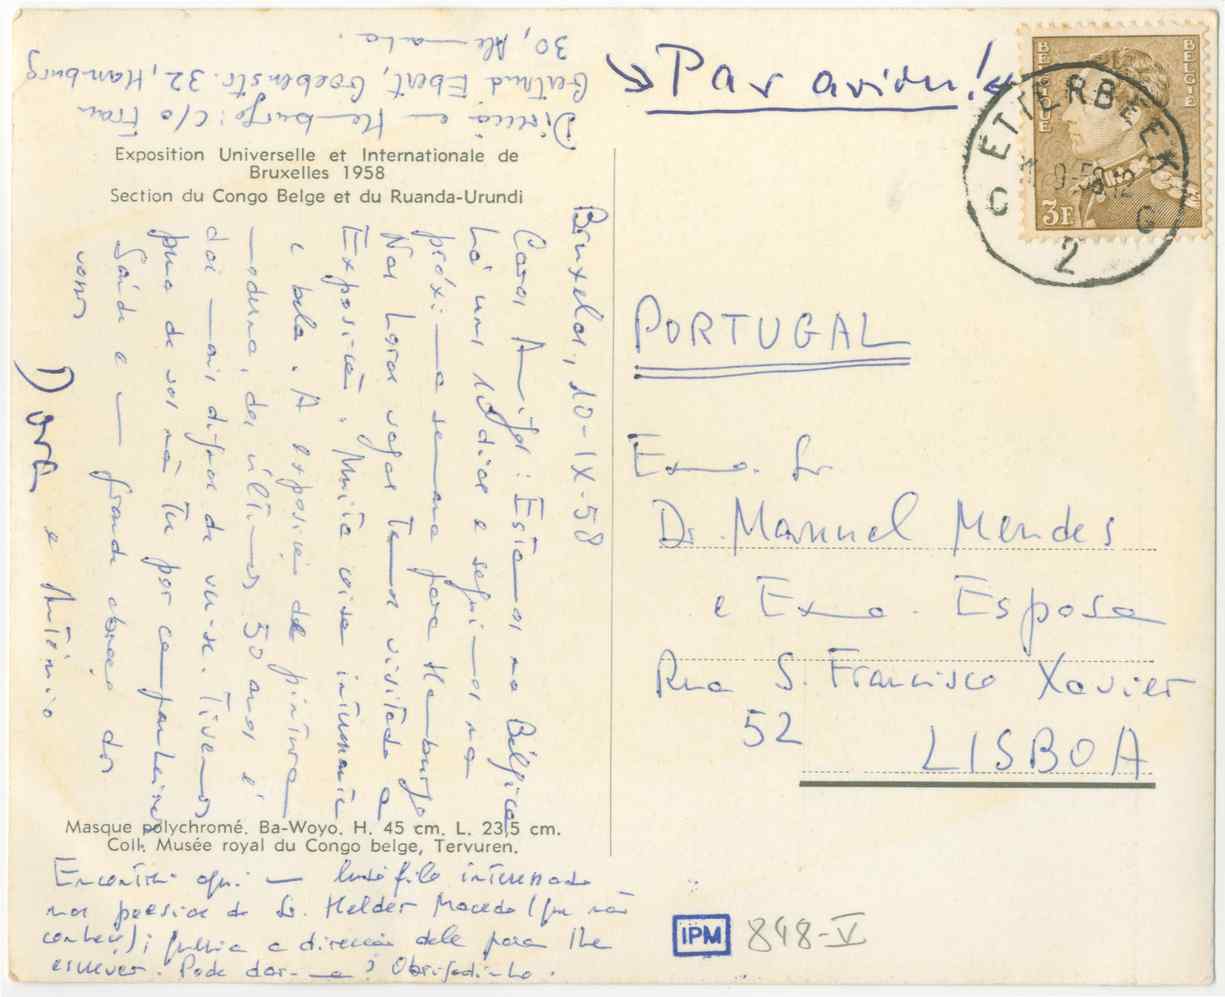 30, Alemanha.
Gertrud Ebert, Goebenstr. 32, Hamburg
Direcção em Hamburgo: c/o Frau
Exposition Universelle et Internationale de
Bruxelles 1958
Section du Congo Belge et du Ruanda-Urundi
Bruxelas, 10-IX-58
Caros Amigos: Estamos na Bélgica
há uns 10 dias e seguimos na
próxima semana para Hamburgo
Nas horas vagas temos visitado a
Exposição. Muita coisa interessante
e bela. A exposição de pintura
moderna, dos últimos 50 anos é
das mais dignas de ver-se. Tivemos
pena de vos não ter por companheiros
Saúde e um grande abraço dos
vossos
e António
Masque polychromé. Ba-Woyo. H. 45 cm. L. 23,5 cm.
Coll. Musée royal du Congo belge, Tervuren.
Encontrei aqui um lusófilo interessado
nas poesias do Sr. Helder Macedo (que não
conheço); queria a direcção dele para lhe
escrever. Pode dar-ma? Obrigadinho.
Par avion!
BELGIQUE
BELGIË
3F
ETTERBEEK
9-58
12
C G
2
PORTUGAL
Exmo. Sr
Dr. Manuel Mendes
e Exma. Esposa
Rua S. Francisco Xavier
52
LISBOA
IPM
848-V